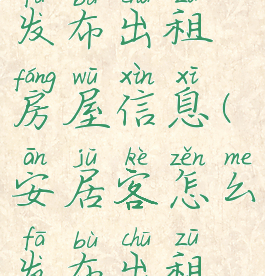 fā bù chū zū
发布出租
fáng wū xìn xī
房屋信息(
ān jū kè zěn me
安居客怎么
fā bù chū zū
发布出租